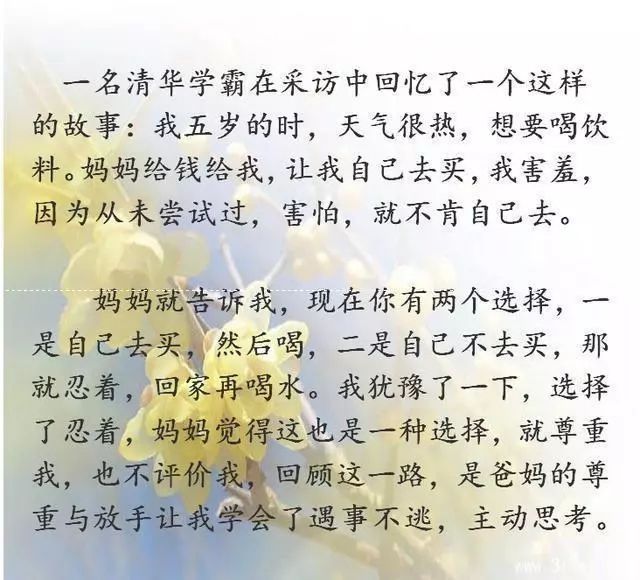 一名清华学霸在采访中回忆了一个这样
的故事：我五岁的时，天气很热，想要喝饮
料。妈妈给钱给我，让我自己去买，我害羞，
因为从未尝试过，害怕，就不肯自己去。
妈妈就告诉我，现在你有两个选择，一
是自己去买，然后喝，二是自己不去买，那
就忍着，回家再喝水。我犹豫了一下，选择
了忍着，妈妈觉得这也是一种选择，就尊重
我，也不评价我，回顾这一路，是爸妈的尊
重与放手让我学会了遇事不逃，主动思考。